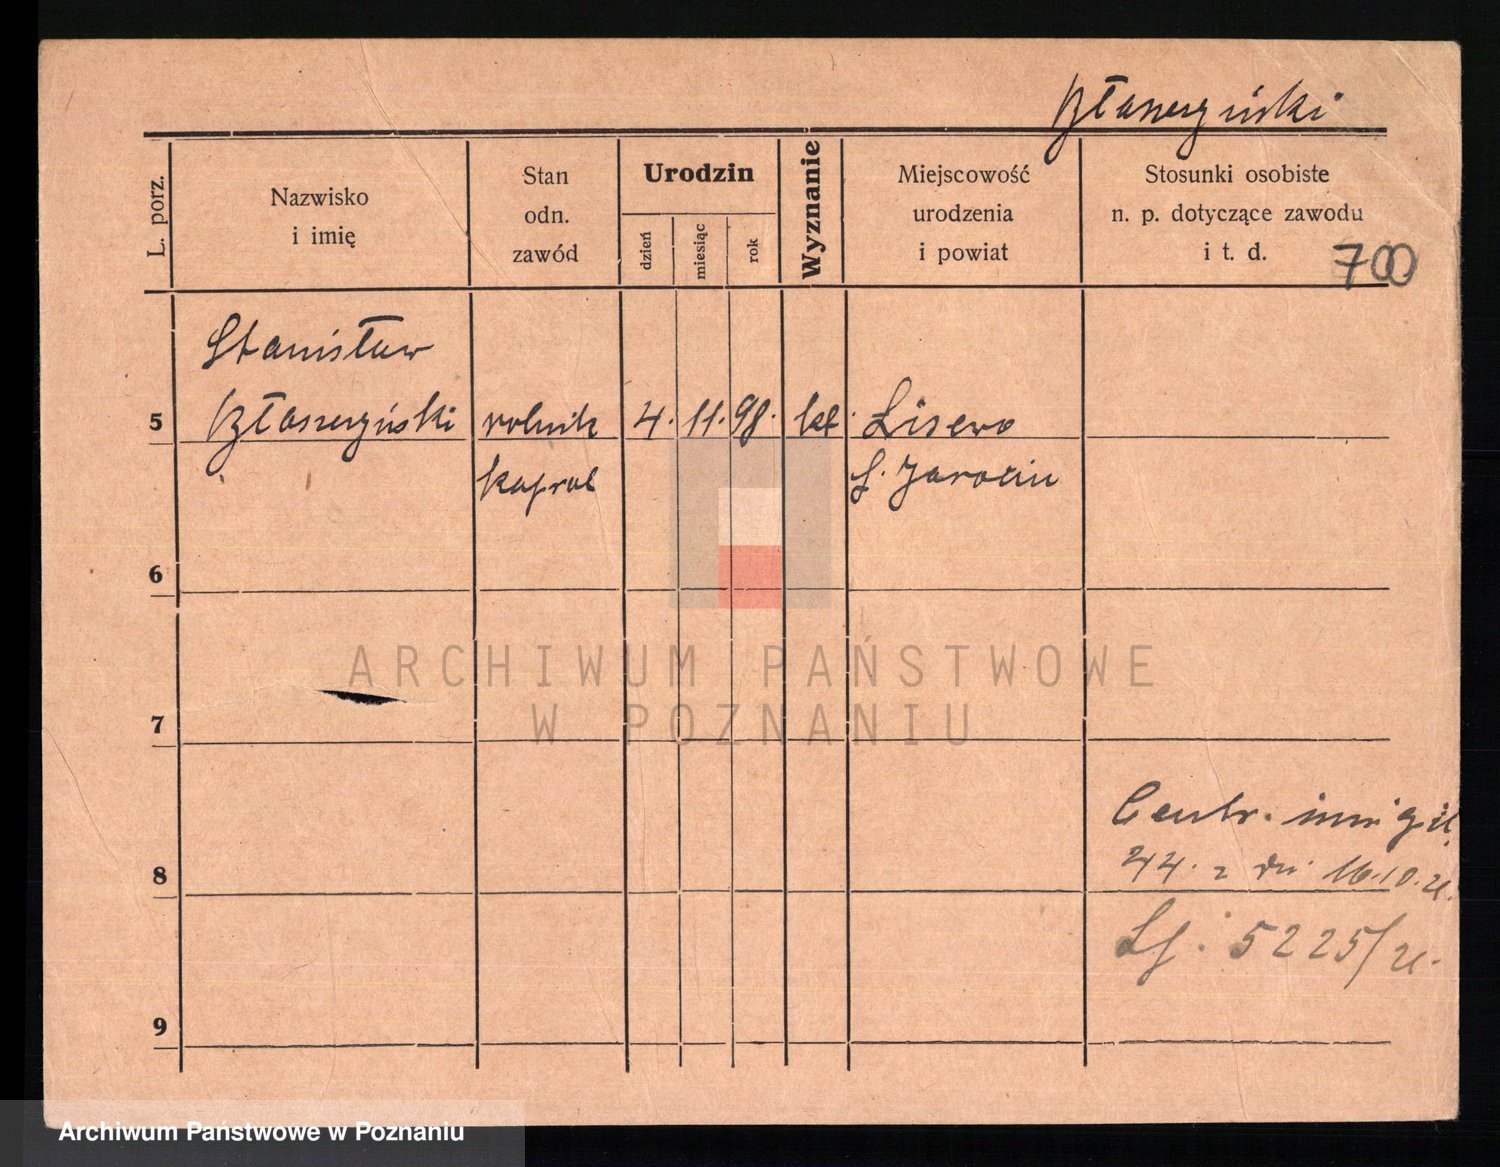 Błaszczyński
L. porz.
Nazwisko
i imię
Stan
odn.
zawód
Urodzin
dzień
miesiąc
rok
Wyznanie
Miejscowość
urodzenia
i powiat
Stosunki osobiste
n. p. dotyczące zawodu
i t. d.
700
Stanisław
5 Błaszczyński rolnik 4. 11. 98. kat. Lisewo
kapral p. Jarocin
6
ARCHIWUM PAŃSTWOWE
W POZNANIU
7
Centr. inwigil.
8
z dn. 16.10.
5225/
9
Archiwum Państwowe w Poznaniu